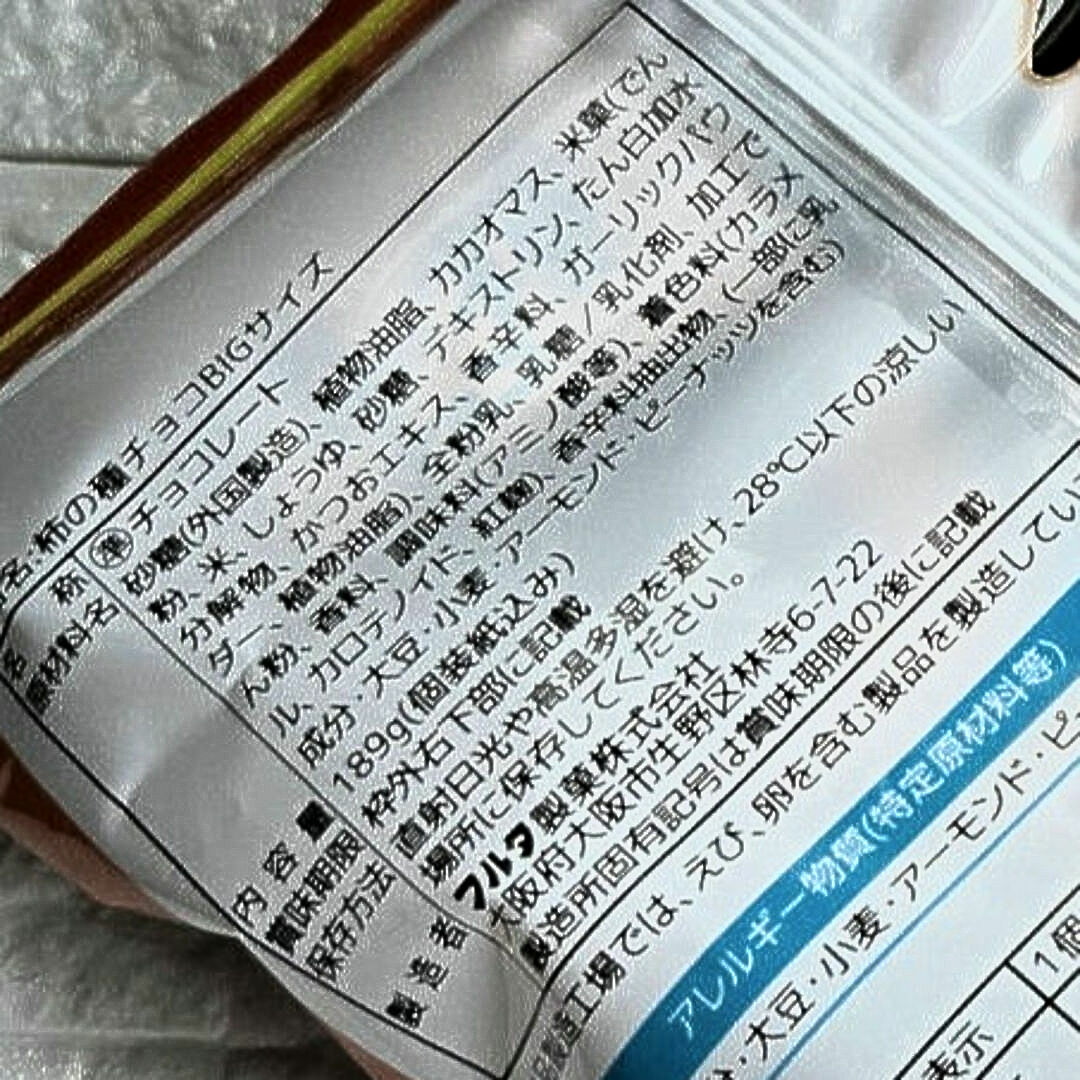 名:柿の種チョコBIGサイズ
名 称 準チョコレート
原材料名 砂糖(外国製造)、植物油脂、カカオマス、米菓(でん
粉、米、しょうゆ、砂糖、デキストリン、たん白加水
分解物、かつおエキス、香辛料、ガーリックパウ
ダー、植物油脂)、全粉乳、乳糖/乳化剤、加工で
ん粉、香料、調味料(アミノ酸等)、着色料(カラメ
ル、カロテノイド、紅麹)、香辛料抽出物、(一部に乳
成分・大豆・小麦・アーモンド・ピーナッツを含む)
内容量 189g(個装紙込み)
賞味期限 枠外右下部に記載
保存方法 直射日光や高温多湿を避け、28℃以下の涼しい
場所に保存してください。
製造者 フルタ製菓株式会社
大阪府大阪市生野区林寺6-7-22
製造所固有記号は賞味期限の後に記載
製造工場では、えび、卵を含む製品を製造してい
アレルギー物質(特定原材料等)
・大豆・小麦・アーモンド・ピ
表示 1個